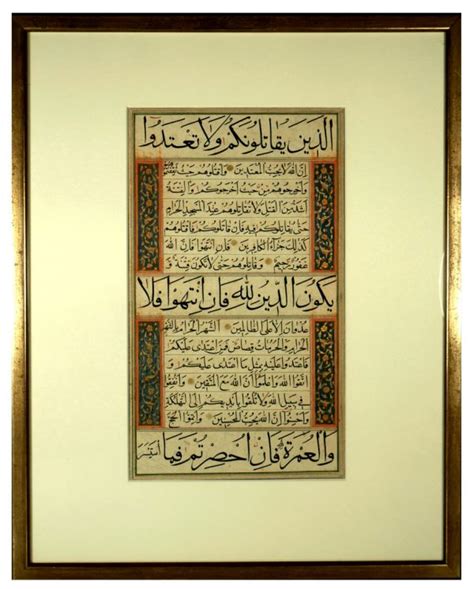 الذين يقاتلونكم ولا تعتدوا
إن الله لا يحب المعتدين واقتلوهم حيث ثقفتموهم
وأخرجوهم من حيث أخرجوكم والفتنة
أشد من القتل ولا تقاتلوهم عند المسجد الحرام
حتى يقاتلوكم فيه فإن قاتلوكم فاقتلوهم
كذلك جزاء الكافرين فإن انتهوا فإن الله
غفور رحيم وقاتلوهم حتى لا تكون فتنة و
يكون الدين لله فإن انتهوا فلا
عدوان إلا على الظالمين الشهر الحرام بالشهر
الحرام والحرمات قصاص فمن اعتدى عليكم
فاعتدوا عليه بمثل ما اعتدى عليكم و
اتقوا الله واعلموا أن الله مع المتقين وأنفقوا
في سبيل الله ولا تلقوا بأيديكم إلى التهلكة
وأحسنوا إن الله يحب المحسنين وأتموا الحج
والعمرة فإن أحصرتم فما
استيسر